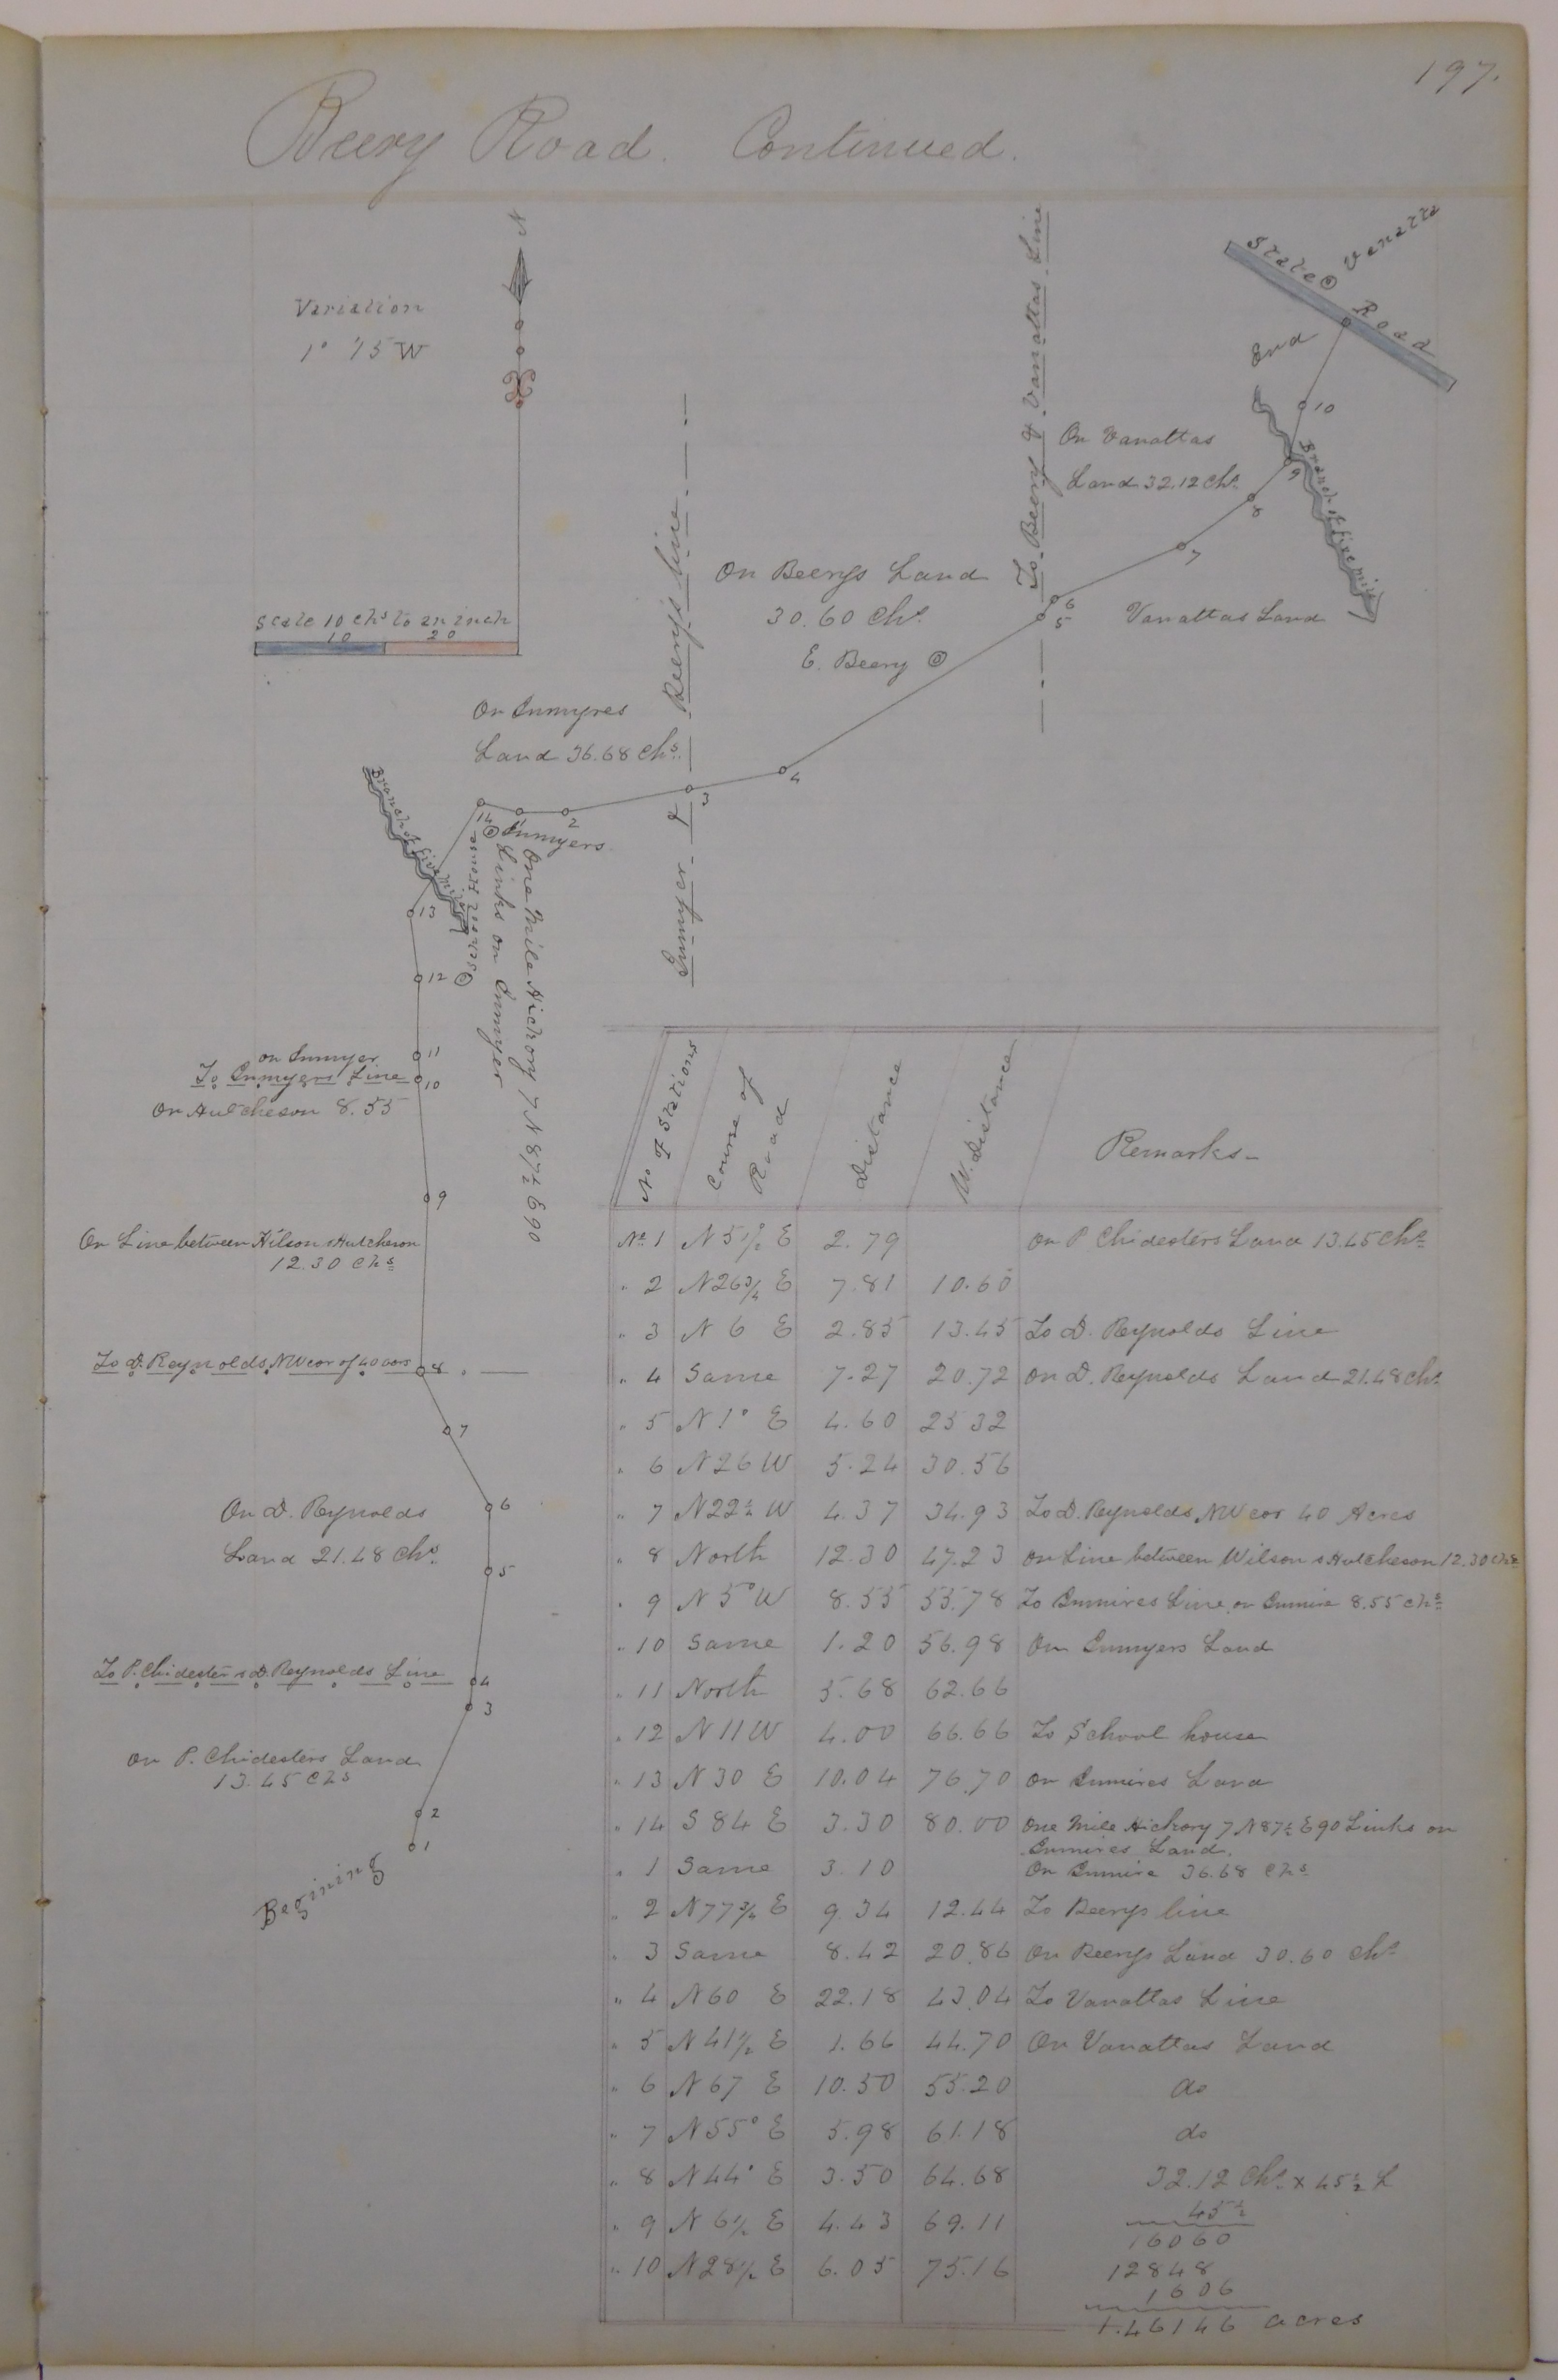 197.
Beery Road. Continued.
N
Variation
1° 15 W
Scale 10 chs to an inch
10 20
State Road
Vanatta
End
10
9
Branch of five mile
8
7
6
5
To Beery & Vanattas Line
On Vanattas
Land 32.12 Chs
Vanattas Land
On Beerys Land
30.60 Chs.
E. Beery
Inmyer & Beery's line
4
3
2
1
14
On Inmyres
Land 36.68 Chs.
Inmyers
One Mile Hickory 7 N 87½ E 90
Links on Inmyer
School House
Branch of five mile
13
12
on Inmyer
11
To Inmyers Line
10
On Hutcheson 8.55
9
On Line between Wilson & Hutcheson
12.30 Chs
To D. Reynolds NW cor of 40 acrs
8
7
6
On D. Reynolds
Land 21.48 Chs.
5
To P. Chidester & D. Reynolds Line
4
3
On P. Chidesters Land
13.45 Chs
2
1
Begining
No of Stations Course of Road Distance W. Distance Remarks
No 1 N 5 1/2° E 2.79 On P Chidesters Land 13.45 Chs
" 2 N 26 3/4 E 7.81 10.60
" 3 N 6 E 2.85 13.45 To D. Reynolds Line
" 4 Same 7.27 20.72 On D. Reynolds Land 21.48 Chs
" 5 N 1° E 4.60 25 32
" 6 N 26 W 5.24 30.56
" 7 N 22½ W 4.37 34.93 To D. Reynolds NW cor 40 Acres
" 8 North 12.30 47.23 On Line between Wilson & Hutcheson 12.30 Chs
" 9 N 5° W 8.55 55.78 To Inmires Line on Inmire 8.55 chs
" 10 Same 1.20 56.98 On Inmyers Land
" 11 North 5.68 62.66
" 12 N 11 W 4.00 66.66 To School house
" 13 N 30 E 10.04 76.70 On Inmires Land
" 14 S 84 E 3.30 80.00 One Mile Hickory 7 N 87½ E 90 Links on
Inmires Land.
" 1 Same 3.10 On Inmire 36.68 Chs
" 2 N 77 3/4 E 9.34 12.44 To Beerys line
" 3 Same 8.42 20.86 On Beerys Land 30.60 Chs
" 4 N 60 E 22.18 43.04 To Vanattas Line
" 5 N 41 1/2 E 1.66 44.70 On Vanattas Land
" 6 N 67 E 10.50 55.20 do
" 7 N 55° E 5.98 61.18 do
" 8 N 44° E 3.50 64.68 32.12 Chs x 45½ L
" 9 N 6 1/2 E 4.43 69.11 45½
16060
" 10 N 28 1/2 E 6.05 75.16 12848
1606
1.46146 acres